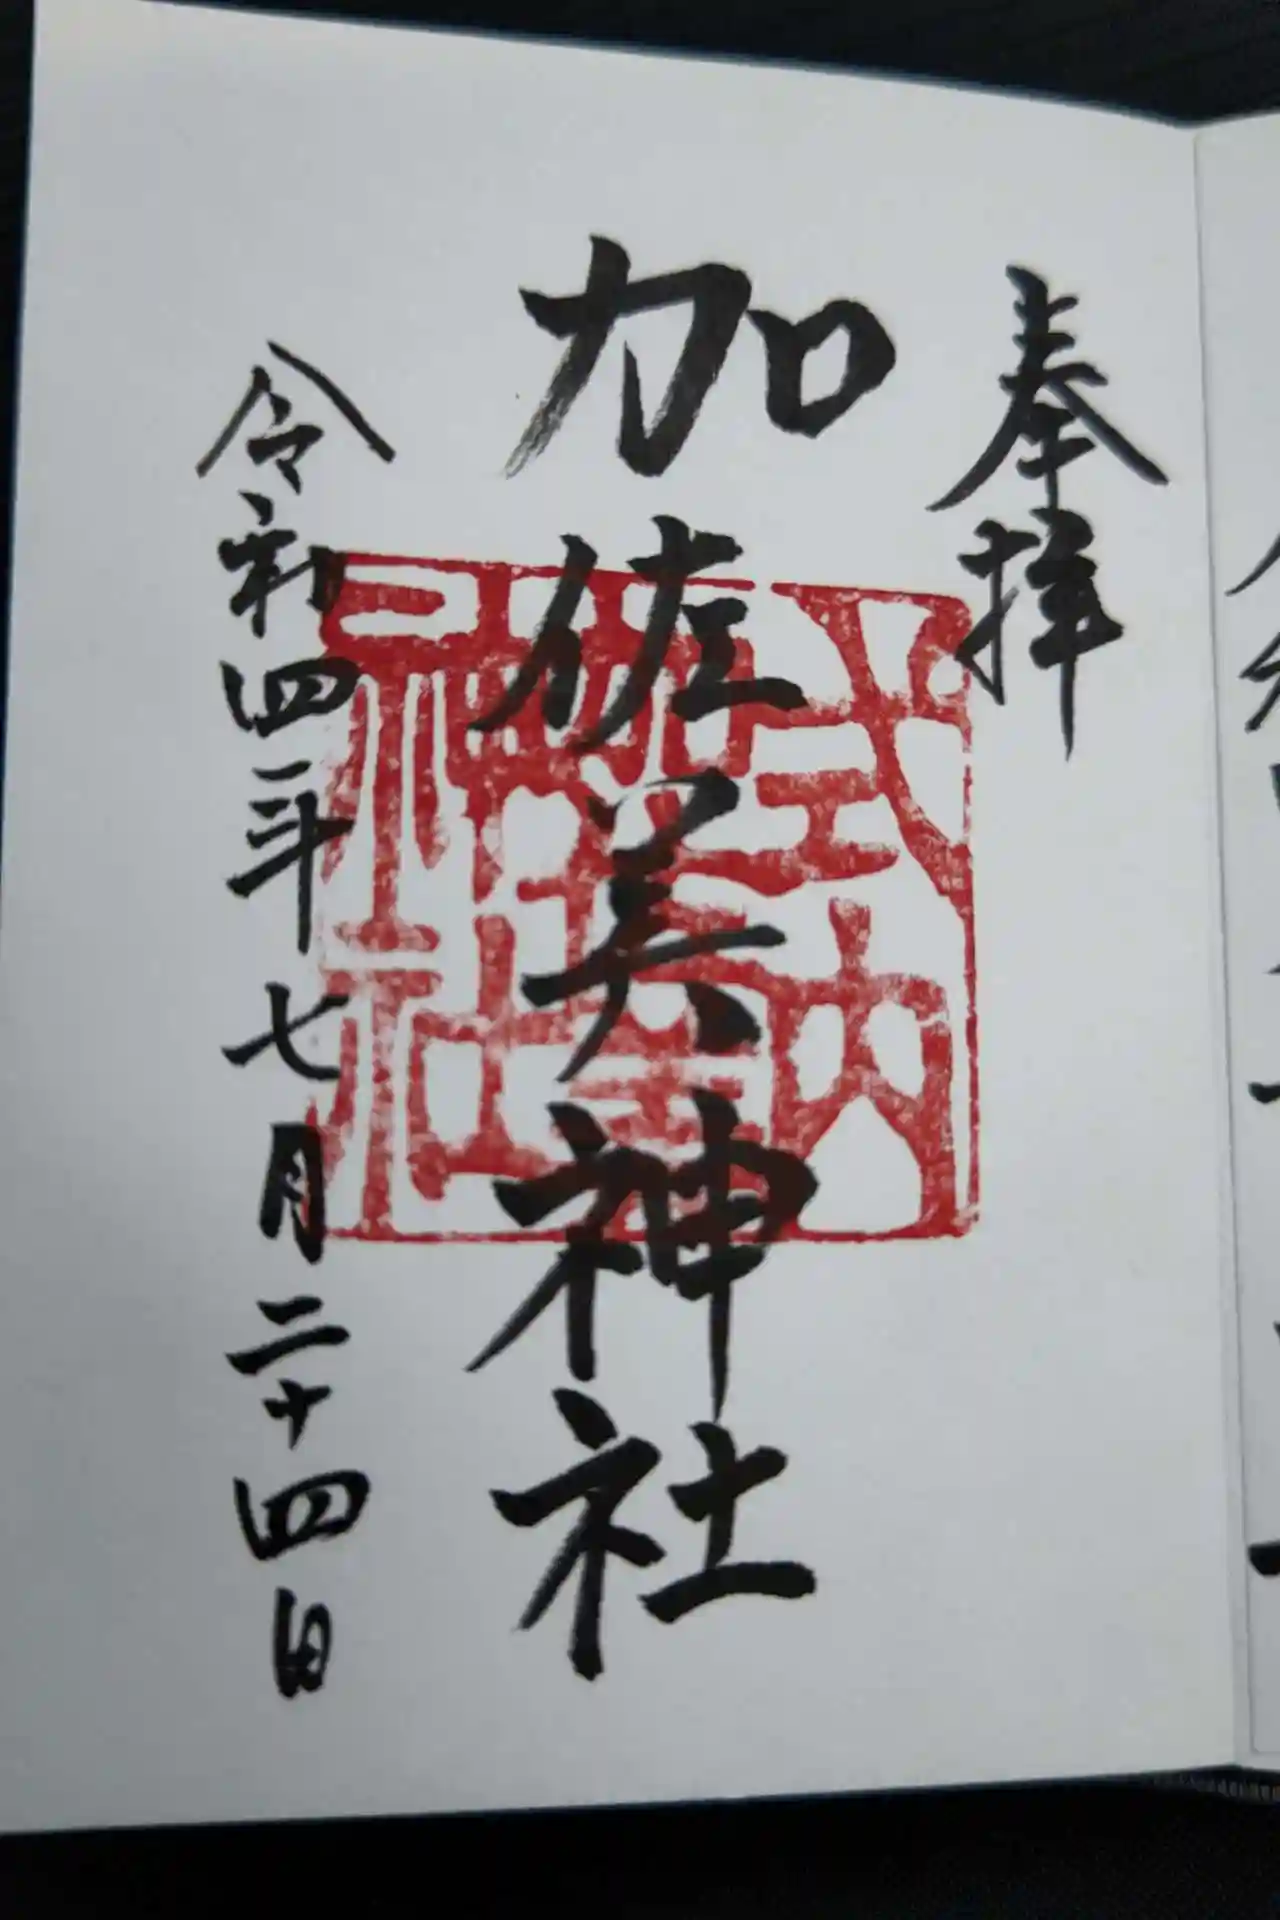 奉拝
加佐美神社
令和四年七月二十四日
式内
加佐美
神社